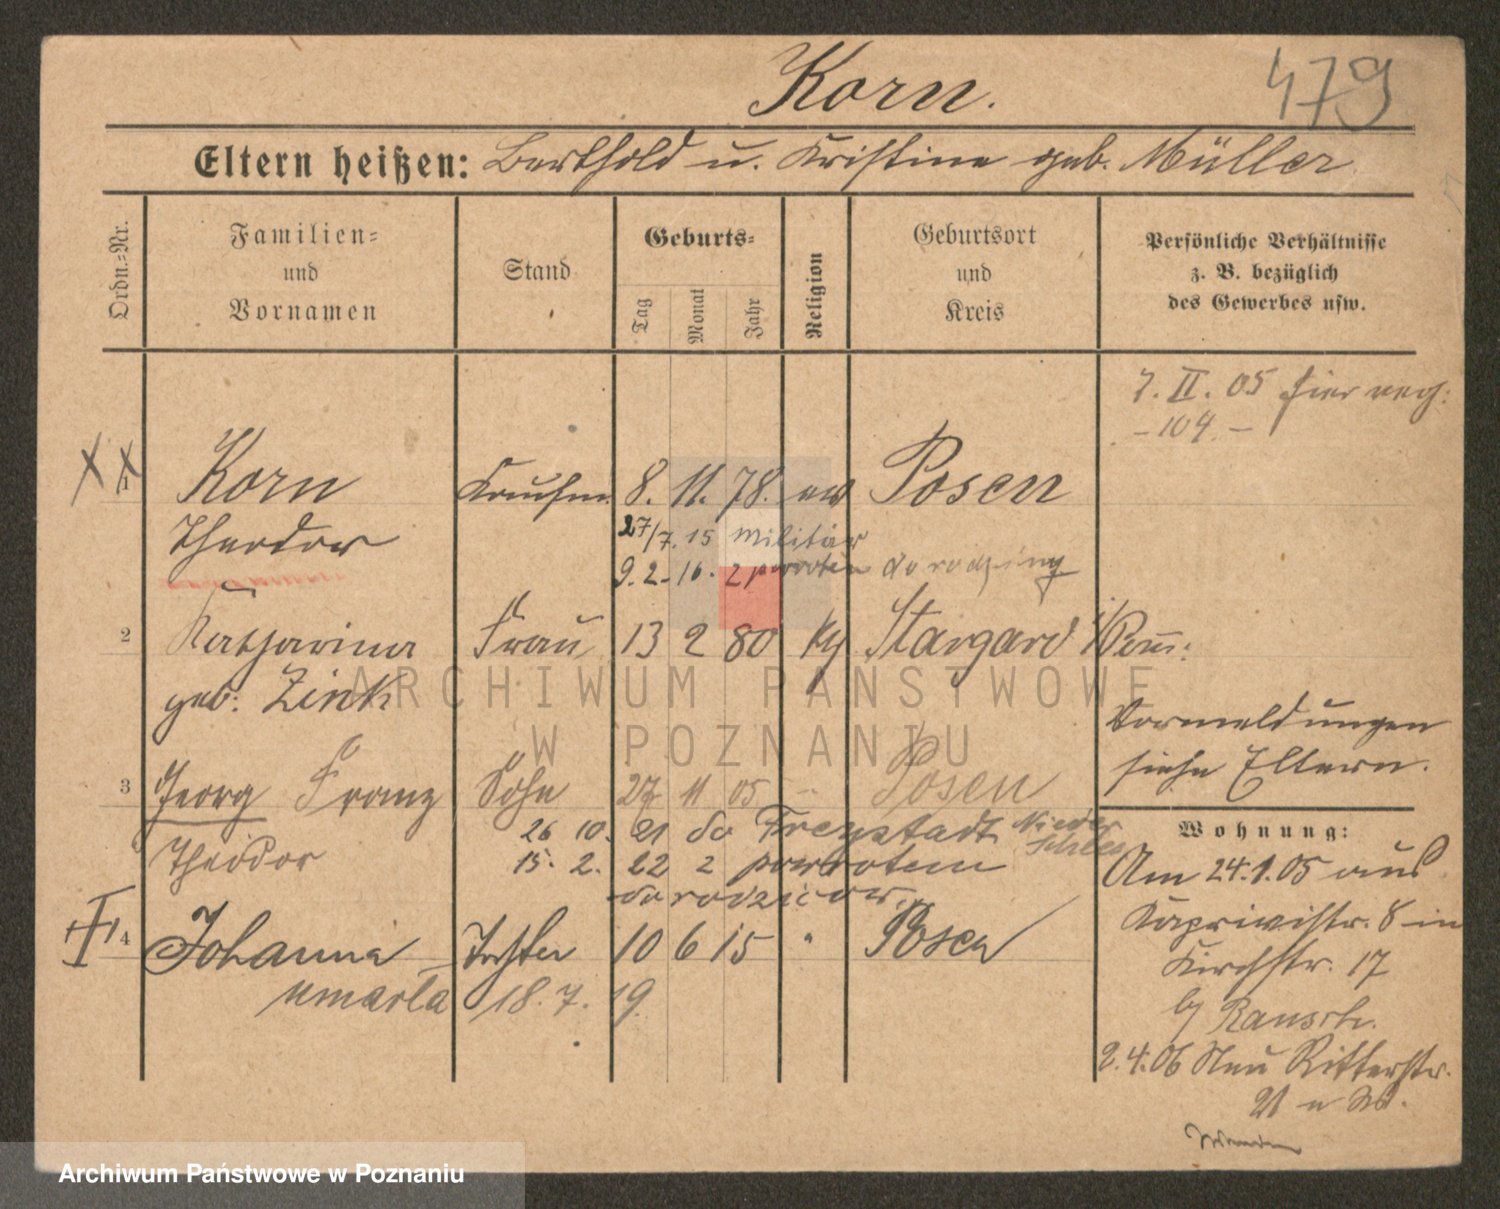 Korn.
479
Eltern heißen: Berthold u. Kristine geb. Müller
Ordn.=Nr.
Familien=
und
Vornamen
Stand
Geburts=
Tag
Monat
Jahr
Religion
Geburtsort
und
Kreis
Persönliche Verhältnisse
z. B. bezüglich
des Gewerbes usw.
7. II. 05 hier
- 104. -
1 Korn Kaufm. 8. 11. 78. ev Posen
Theodor
27/7. 15 Militär
9. 2. 16. z powrotem do rodziny
2 Katharina Frau 13 2 80 Stargard i/Pom:
geb. Zink
Vormeldungen
siehe Eltern.
3 Georg Franz Sohn 27 11 05 Posen
Theodor
26 10. 21 do Freystadt Nieder Schles
15. 2. 22 z powrotem
do rodziców.
4 Johanna Tochter 10 6 15 " Posen
umarła 18. 7. 19.
Wohnung:
Am 24.1.05 aus
Kaprivistr. 8 in
Kirchstr. 17
by Rausch.
2.4.06 Neu Ritterstr.
21
Wenden
ARCHIWUM PAŃSTWOWE
W POZNANIU
Archiwum Państwowe w Poznaniu